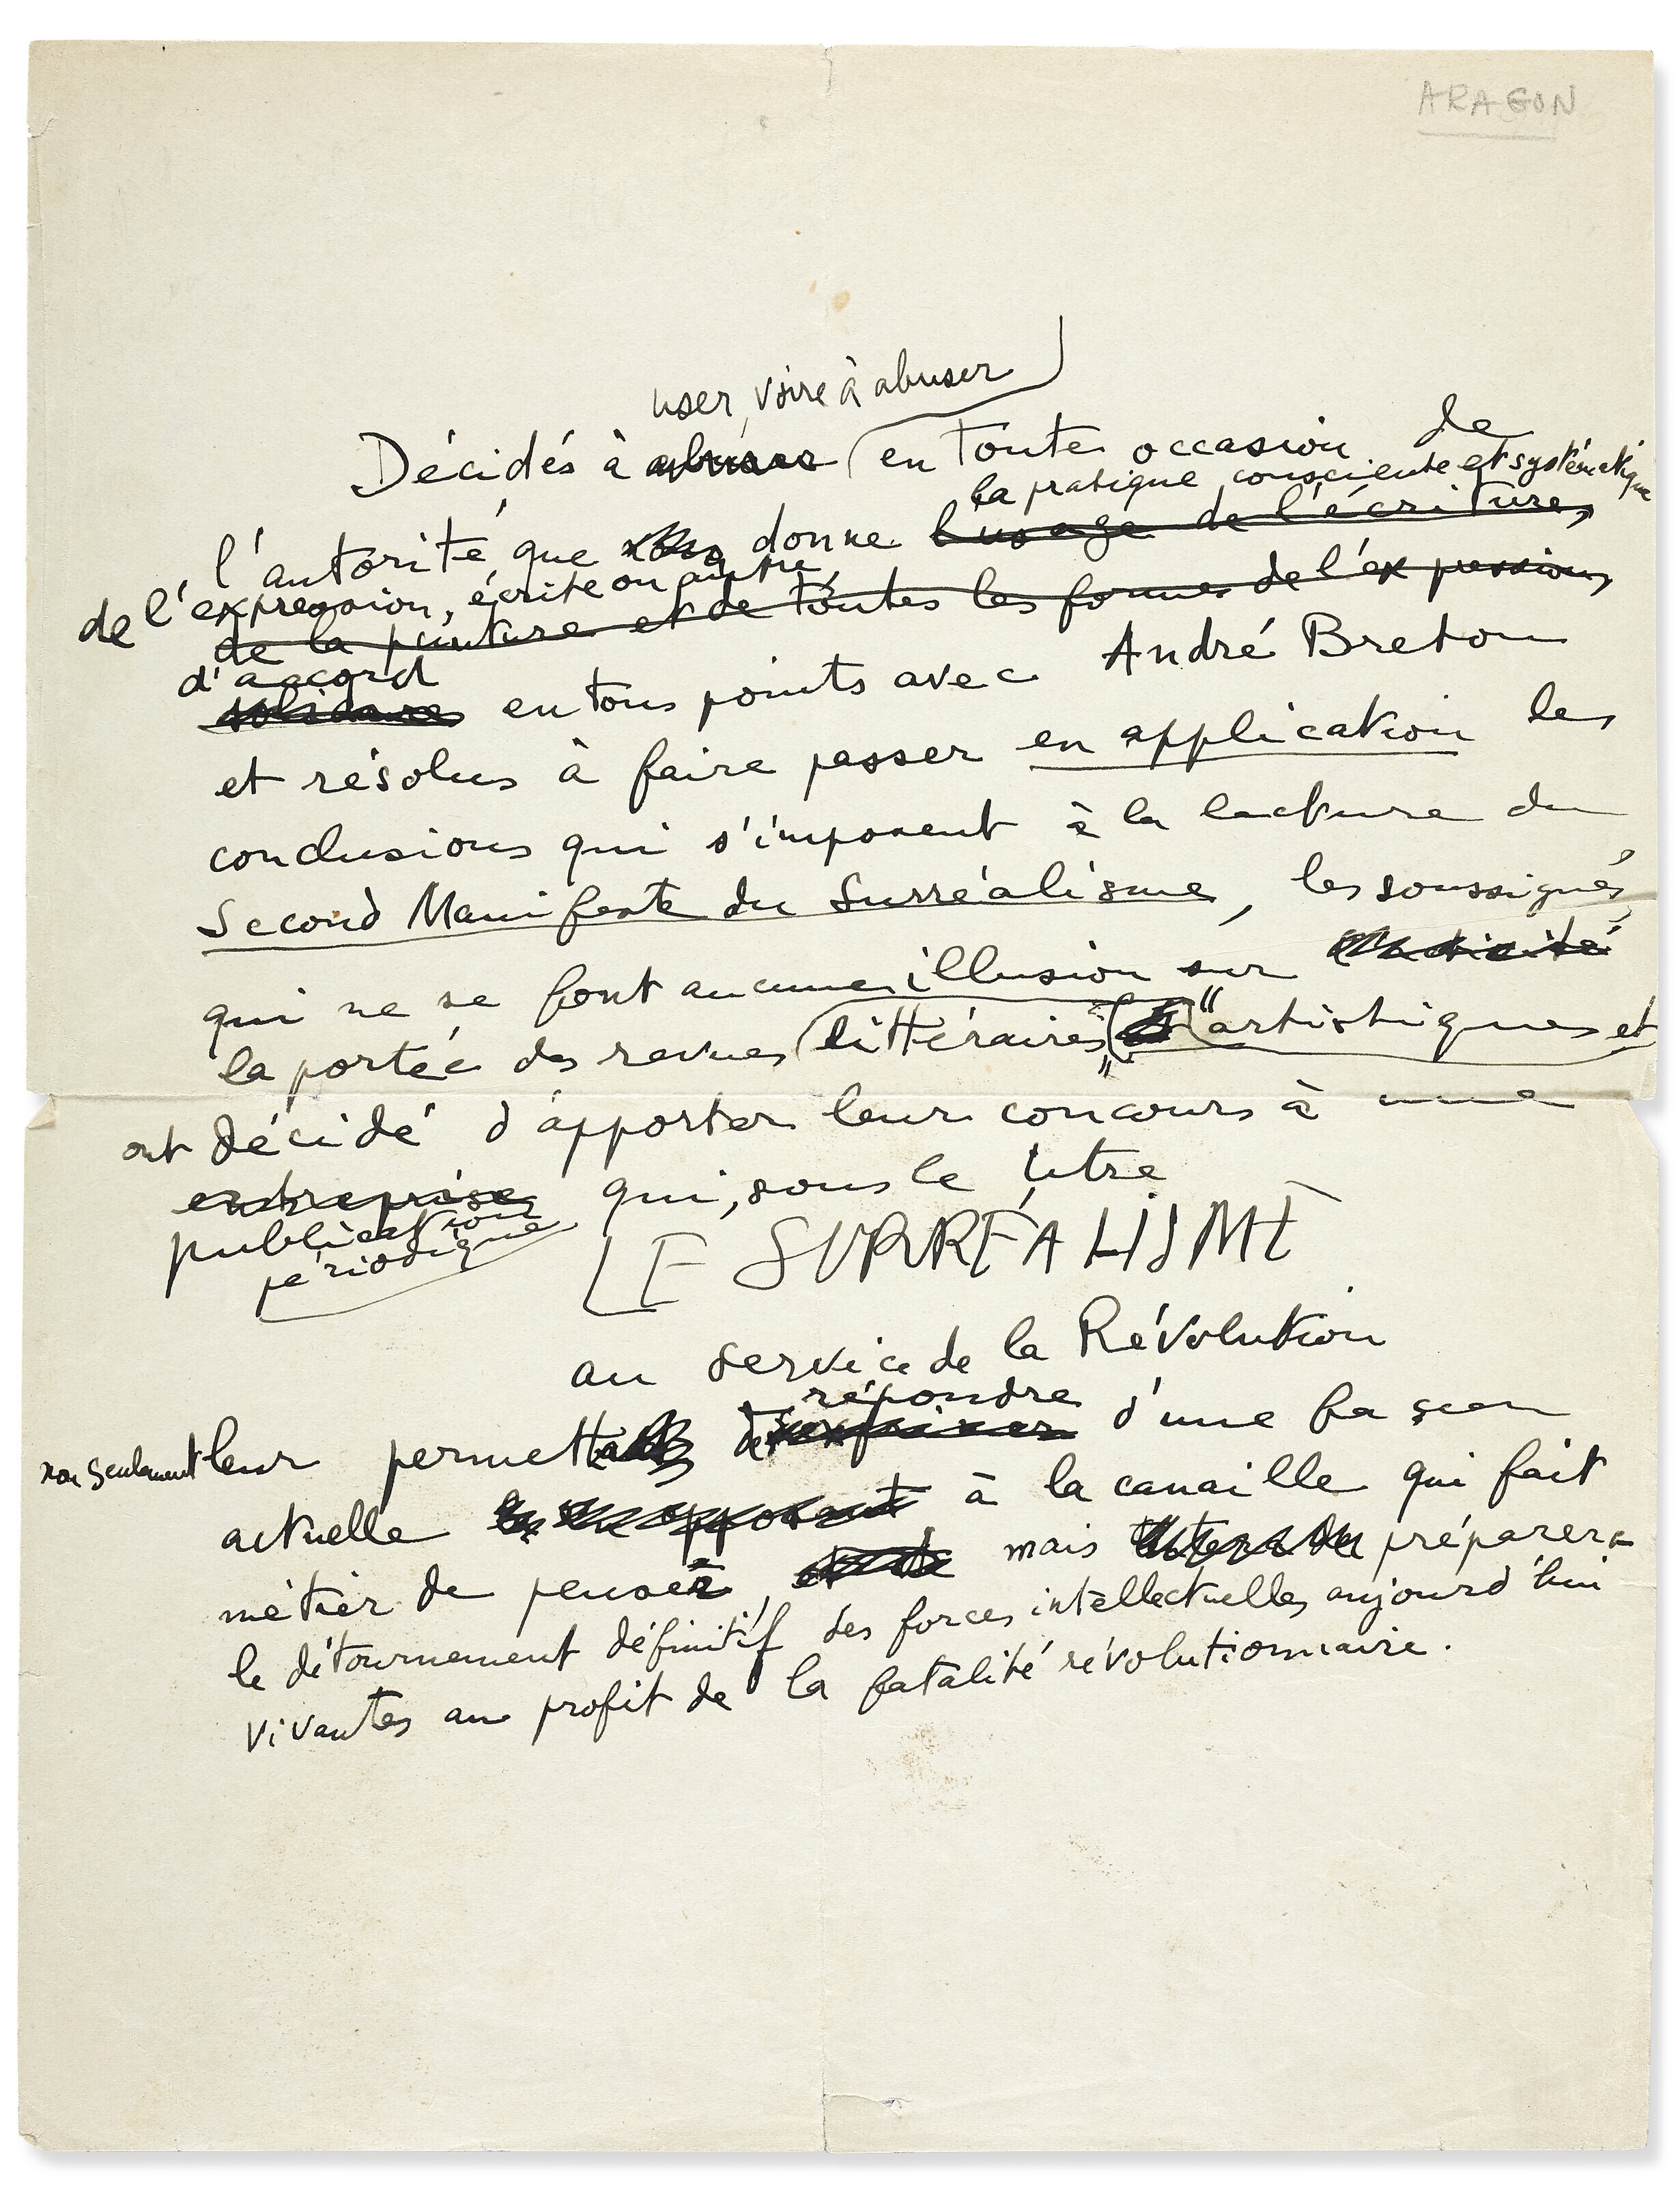 ARAGON
user, voire à abuser
Décidés à abuser en toute occasion de
la pratique consciente et systématique
l'autorité que donne l'usage de l'écriture,
de l'expression, écrite ou autre,
de la peinture et de toutes les formes de l'expression,
d'accord
solidaires en tous points avec André Breton
et résolus à faire passer en application les
conclusions qui s'imposent à la lecture du
Second Manifeste du Surréalisme, les soussignés
qui ne se font aucune illusion sur
la portée des revues littéraires" "artistiques et
ont décidé d'apporter leur concours à une
entreprise qui, sous le titre
publication
périodique
LE SURRÉALISME
au service de la Révolution
répondre
non seulement leur permettra de s'exprimer d'une façon
actuelle en opposant à la canaille qui fait
métier de penser, mais préparera
le détournement définitif des forces intellectuelles aujourd'hui
vivantes au profit de la fatalité révolutionnaire.